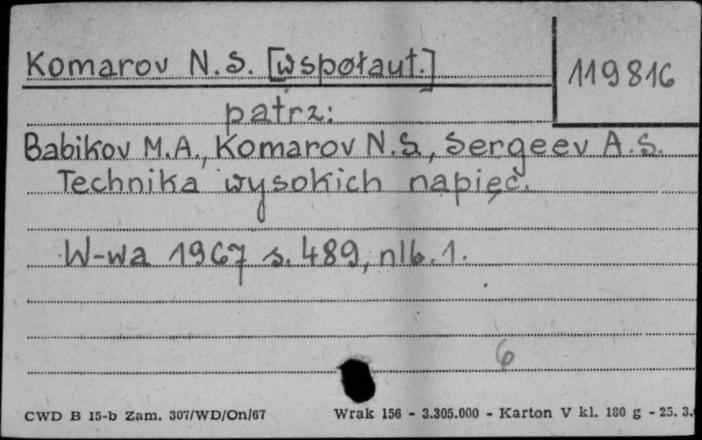 Komarov N.S. [współaut.]
119816
patrz:
Babikov M.A., Komarov N.S., Sergeev A.S.
Technika wysokich napięć.
W-wa 1967 s. 489, nlb. 1.
6
CWD B 15-b Zam. 307/WD/On/67 Wrak 156 - 3.305.000 - Karton V kl. 180 g - 25. 3.